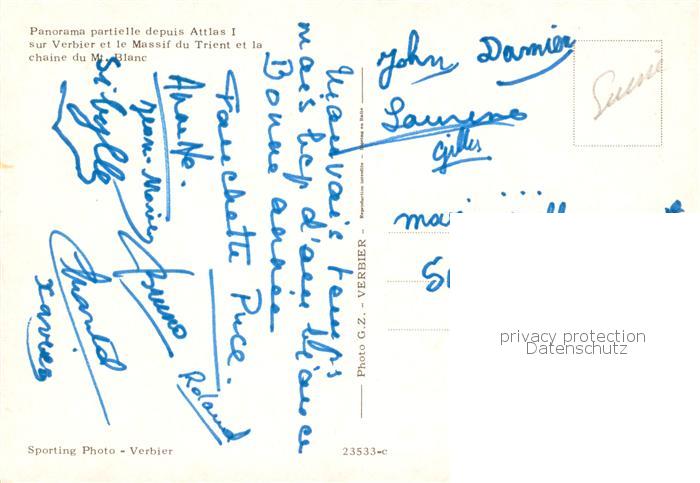 Panorama partielle depuis Attlas I
sur Verbier et le Massif du Trient et la
chaine du Mt. Blanc
Mauvais temps
mais bcp d'ambiance
Bonne année
Fanchette Puce.
Annette.
Jean-Marie
Sibylle
Bruno
Roland
Chantal
Xavier
John Damien
Laurence
Gilles
Photo G.Z. - VERBIER - Reproduction interdite - Printing en Italie
privacy protection
Datenschutz
Sporting Photo - Verbier
23533-c